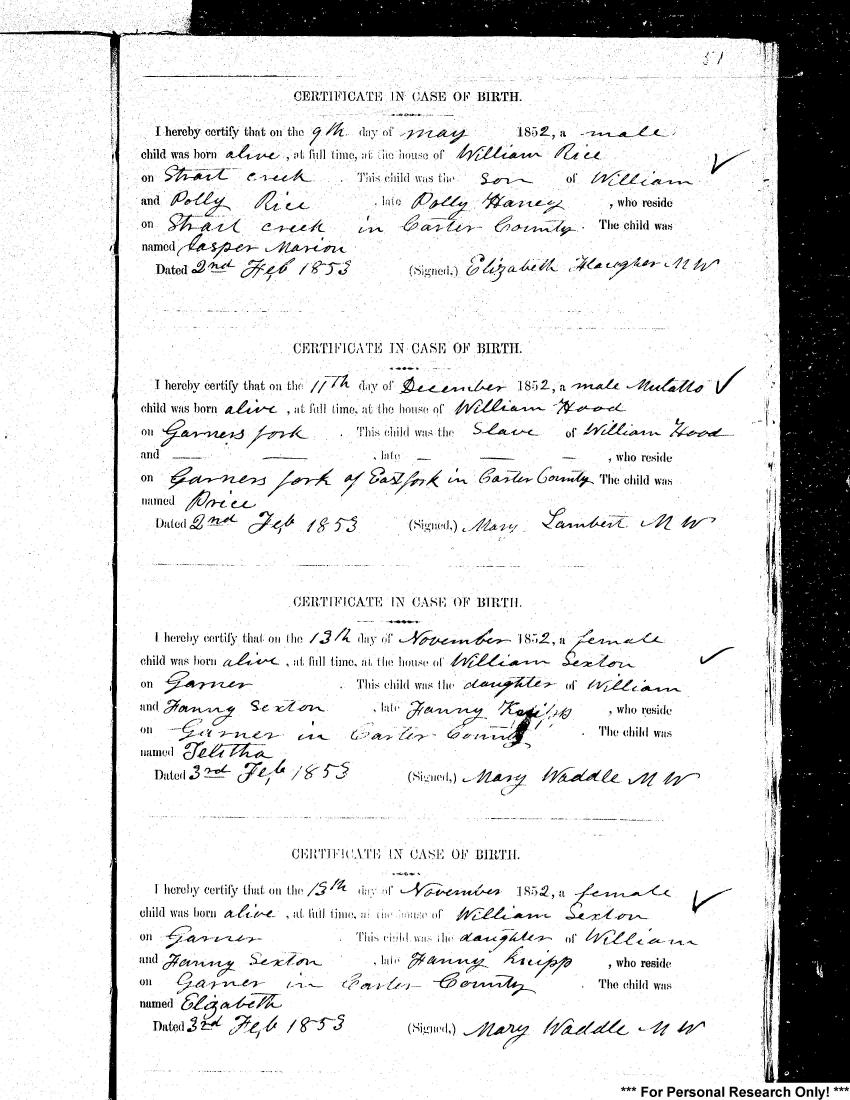 51
CERTIFICATE IN CASE OF BIRTH.
I hereby certify that on the 9th day of may 1852, a male
child was born alive, at full time, at the house of William Rice
on Strait creek. This child was the Son of William
and Polly Rice, late Polly Haney, who reside
on Strait creek in Carter County. The child was
named Casper Marion
Dated 2nd Feb 1853 (Signed,) Elizabeth M W
CERTIFICATE IN CASE OF BIRTH.
I hereby certify that on the 11Th day of December 1852, a male Mulatto
child was born alive, at full time, at the house of William Hood
on Garners fork. This child was the Slave of William Hood
and — —, late — — —, who reside
on Garners fork of East fork in Carter County The child was
named Price
Dated 2nd Feb 1853 (Signed,) Mary Lambert M W
CERTIFICATE IN CASE OF BIRTH.
I hereby certify that on the 13th day of November 1852, a female
child was born alive, at full time, at the house of William Sexton
on Garner. This child was the daughter of William
and Fanny Sexton, late Fanny Knipp, who reside
on Garner in Carter County. The child was
named Telitha
Dated 3rd Feb 1853 (Signed,) Mary Waddle M W
CERTIFICATE IN CASE OF BIRTH.
I hereby certify that on the 13th day of November 1852, a female
child was born alive, at full time, at the house of William Sexton
on Garner. This child was the daughter of William
and Fanny Sexton, late Fanny Knipp, who reside
on Garner in Carter County. The child was
named Elizabeth
Dated 3rd Feb 1853 (Signed,) Mary Waddle M W
*** For Personal Research Only! ***